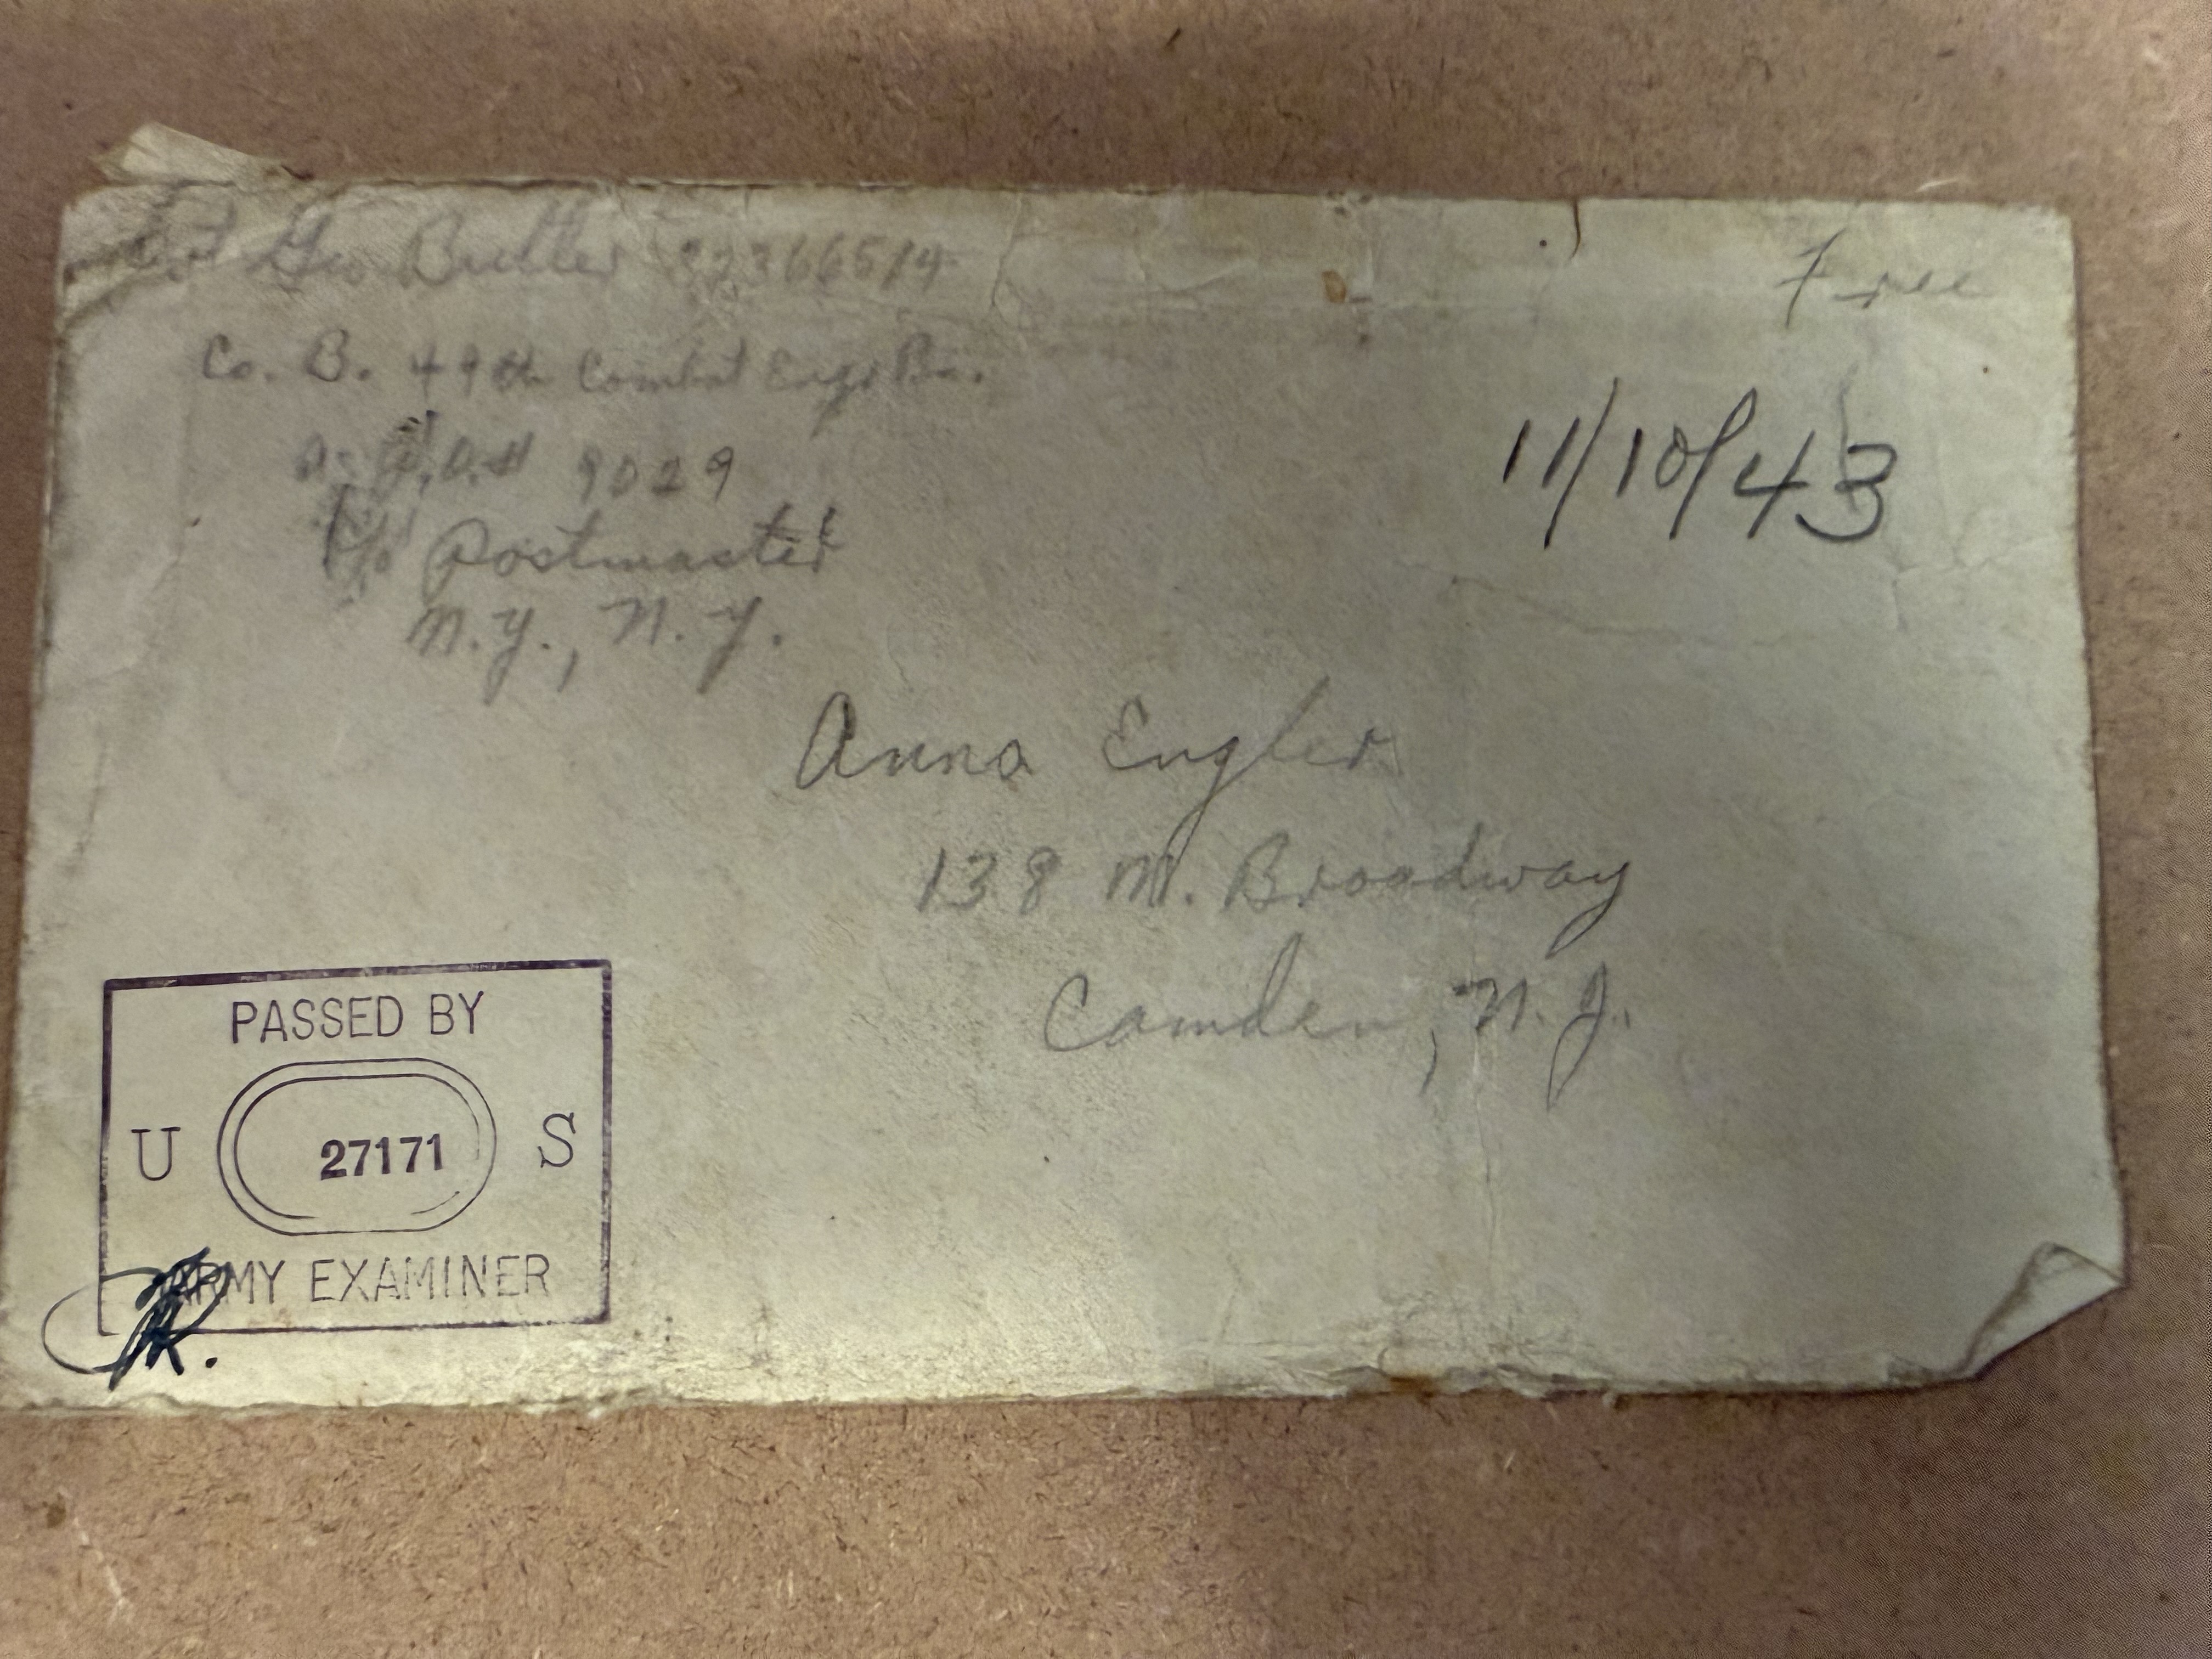 Geo Butler 32366514
Free
Co. B. 49th Combat Engr Bn.
A.P.O.# 9029
c/o Postmaster
N.Y., N.Y.
11/10/43
Anna Engler
138 N. Broadway
Camden, N.J.
PASSED BY
U 27171 S
ARMY EXAMINER